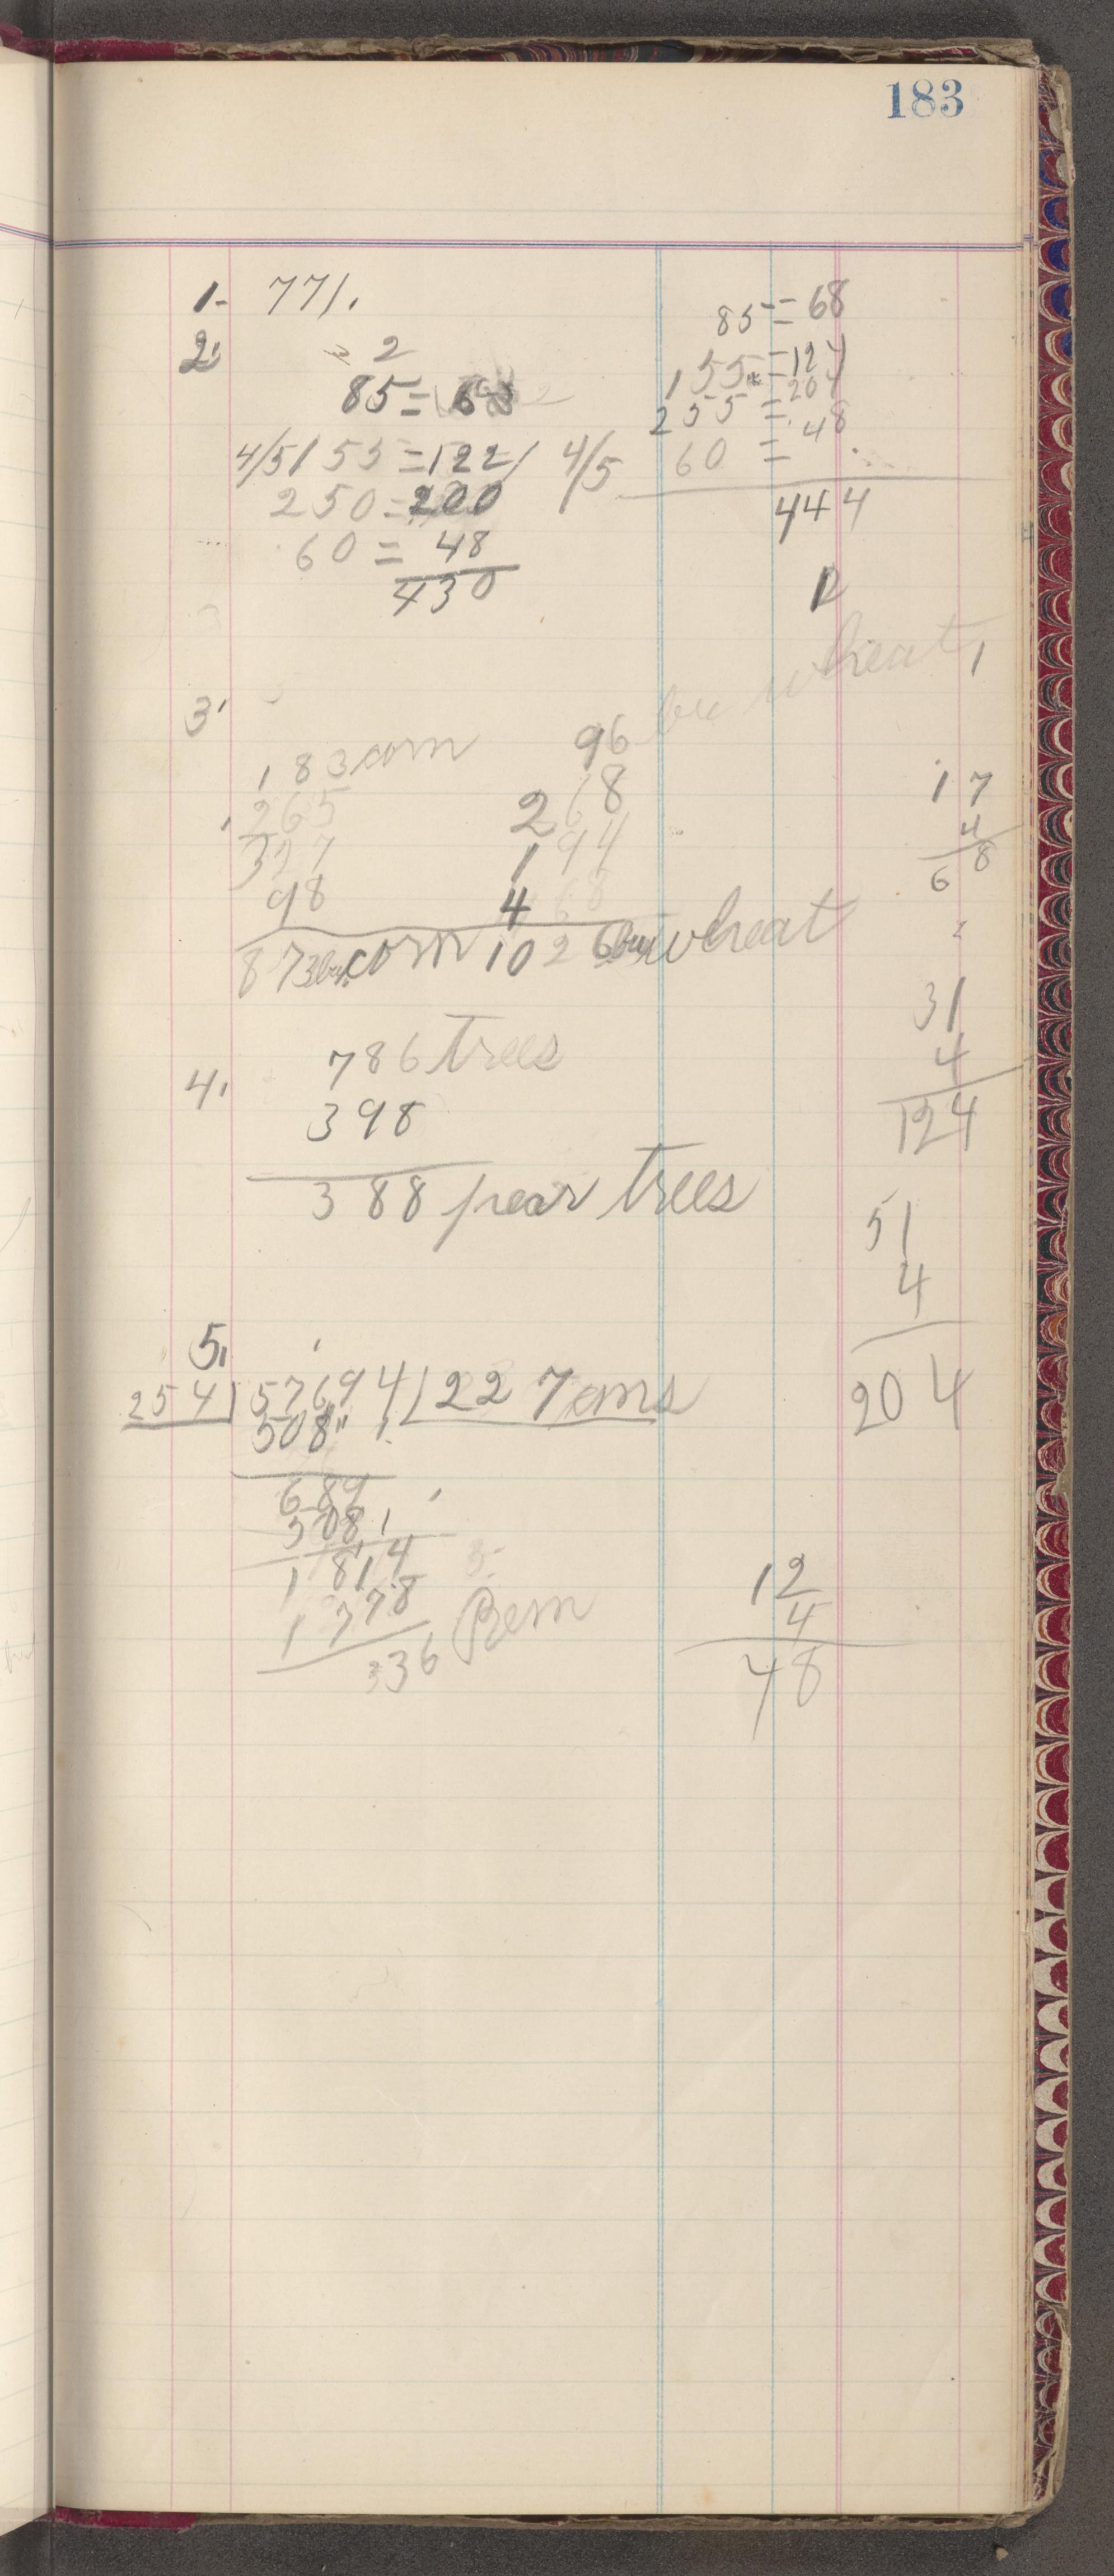 183
1. 771.
2.
2
85 = 68
4/5 155 = 122 4/5
250 = 200
60 = 48
430
85 = 68
155 = 124
255 = 204
60 = 48
444
12
bu wheat
3.
183 corn
265
327
98
873 bu. corn
96
268
194
468
1026 bu wheat
17
4
68
31
4
124
4.
786 trees
398
388 pear trees
51
4
204
5.
254) 57694 (227 ans
508
689
508
1814
1778
36 Rem
12
4
48